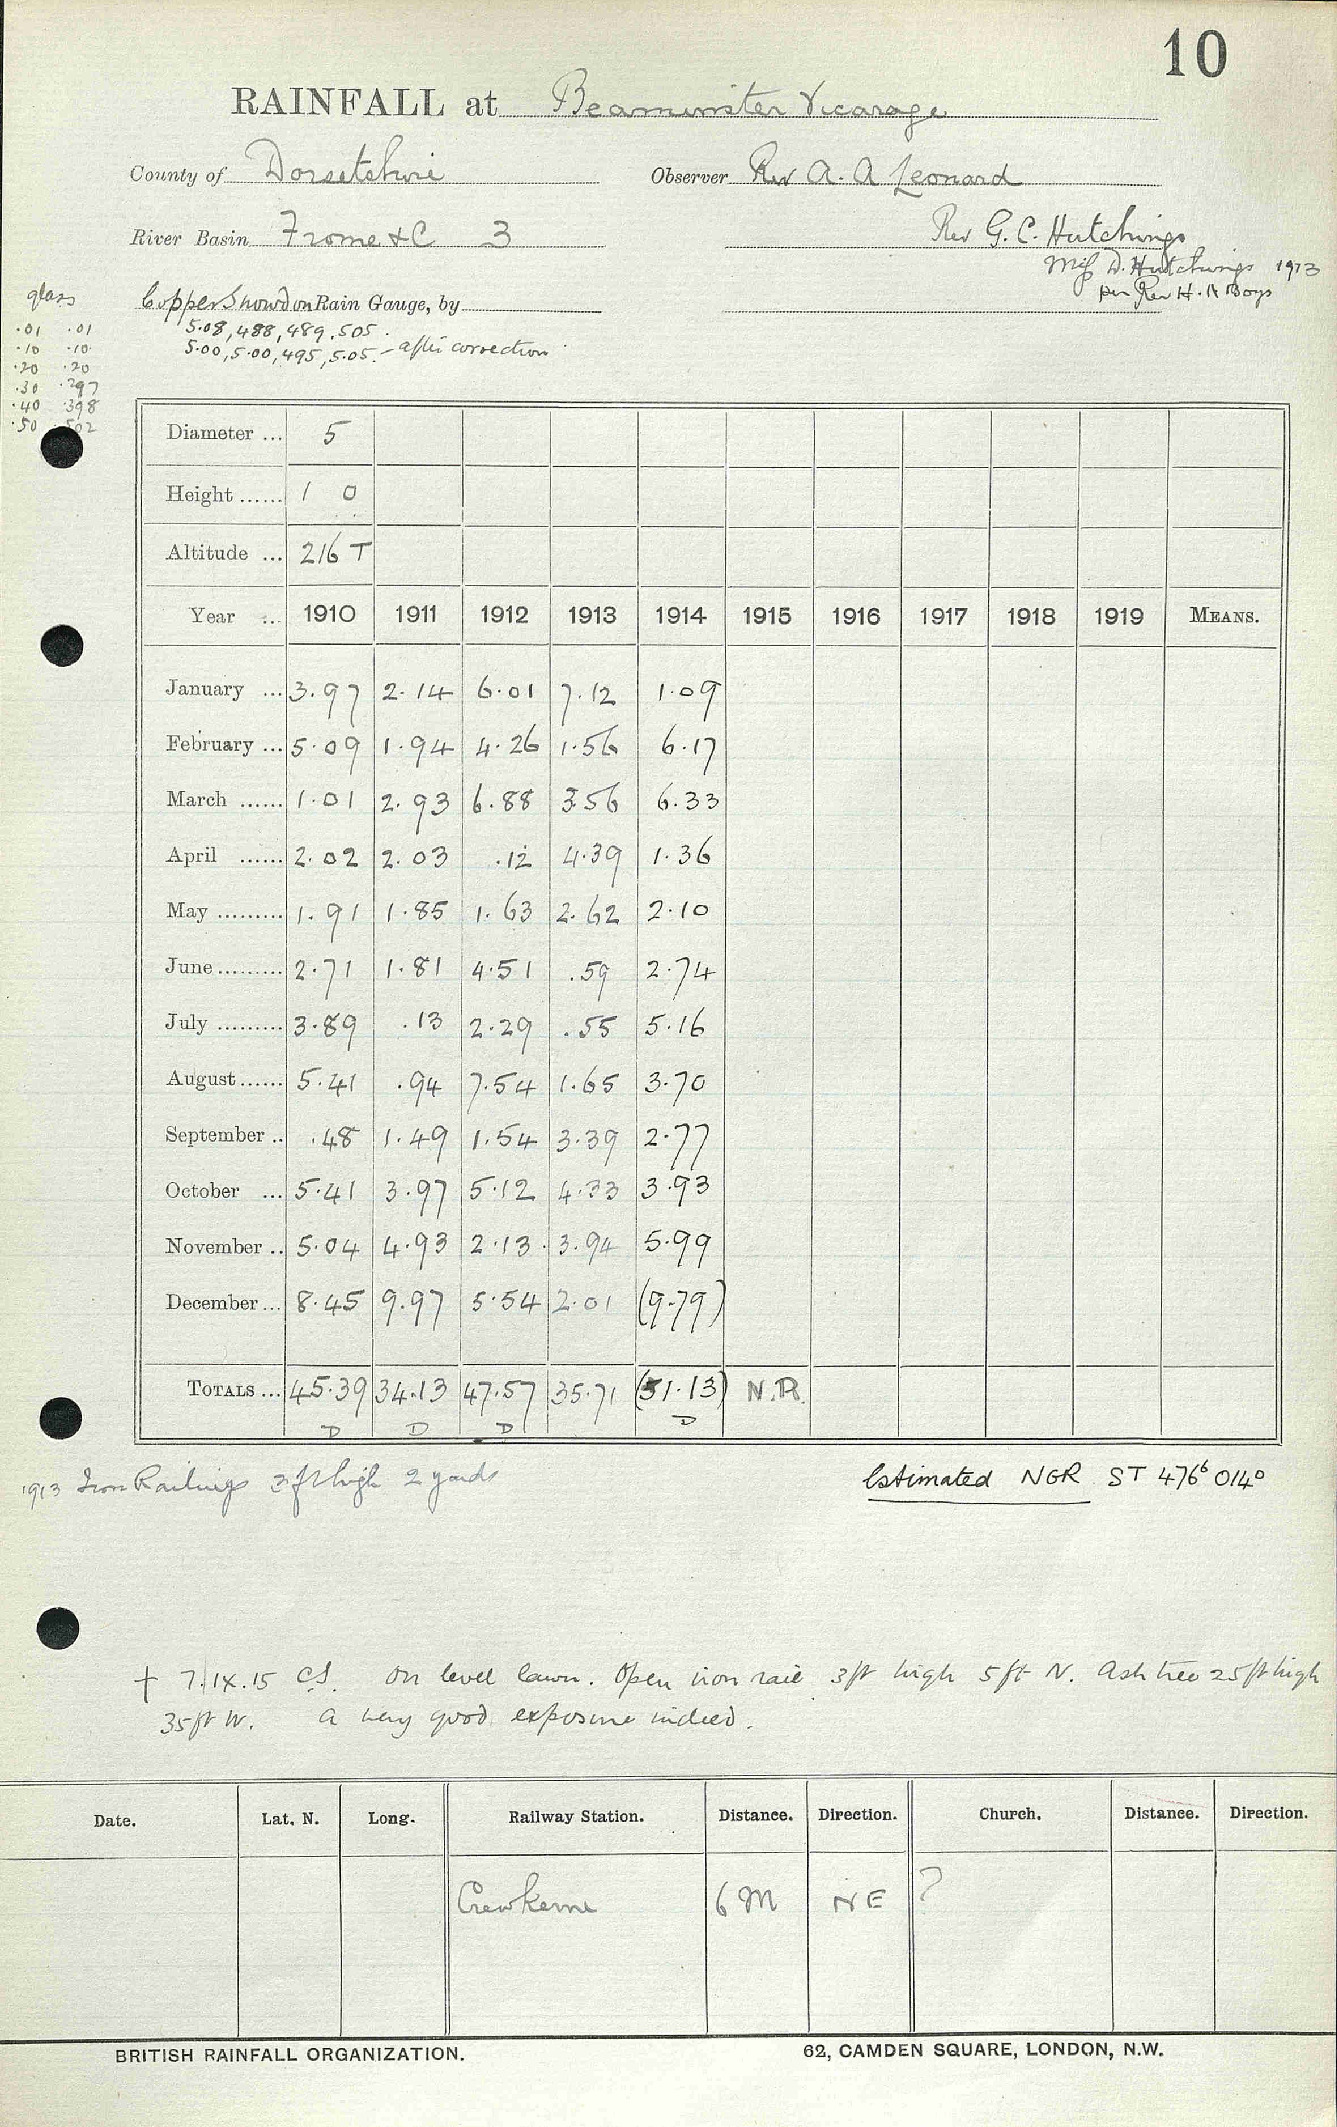 10
RAINFALL at Beaminster Vicarage
County of Dorsetshire Observer Rev A. A Leonard
River Basin Frome &C 3 Rev G. C. Hutchings
Miss D. Hutchings 1913
per Rev H. A Boys
glass Copper Snowdon Rain Gauge, by
.01 .01 5.08, 488, 489, 505.
.10 .10 5.00, 5.00, 495, 5.05. - after correction
.20 .20
.30 .297
.40 .398
.50 .502
Diameter ... 5
Height ...... 1 0
Altitude ... 216 T
Year ... 1910 1911 1912 1913 1914 1915 1916 1917 1918 1919 MEANS.
January ... 3.97 2.14 6.01 7.12 1.09
February ... 5.09 1.94 4.26 1.56 6.17
March ...... 1.01 2.93 6.88 3.56 6.33
April ...... 2.02 2.03 .12 4.39 1.36
May ......... 1.91 1.85 1.63 2.62 2.10
June ......... 2.71 1.81 4.51 .59 2.74
July ......... 3.89 .13 2.29 .55 5.16
August ...... 5.41 .94 7.54 1.65 3.70
September .. .48 1.49 1.54 3.39 2.77
October ... 5.41 3.97 5.12 4.33 3.93
November .. 5.04 4.93 2.13 3.94 5.99
December ... 8.45 9.97 5.54 2.01 (9.79)
TOTALS ... 45.39 34.13 47.57 35.71 (51.13) N.R.
D D D D
1913 Iron Railings 3ft high 2 yards Estimated NGR ST 476⁶ 014⁰
† 7.IX.15 C.S. On level lawn. Open iron rail 3ft high 5ft N. Ash tree 25ft high
35ft W. A very good exposure indeed.
Date. Lat. N. Long. Railway Station. Distance. Direction. Church. Distance. Direction.
Crewkerne 6 M NE ?
BRITISH RAINFALL ORGANIZATION. 62, CAMDEN SQUARE, LONDON, N.W.